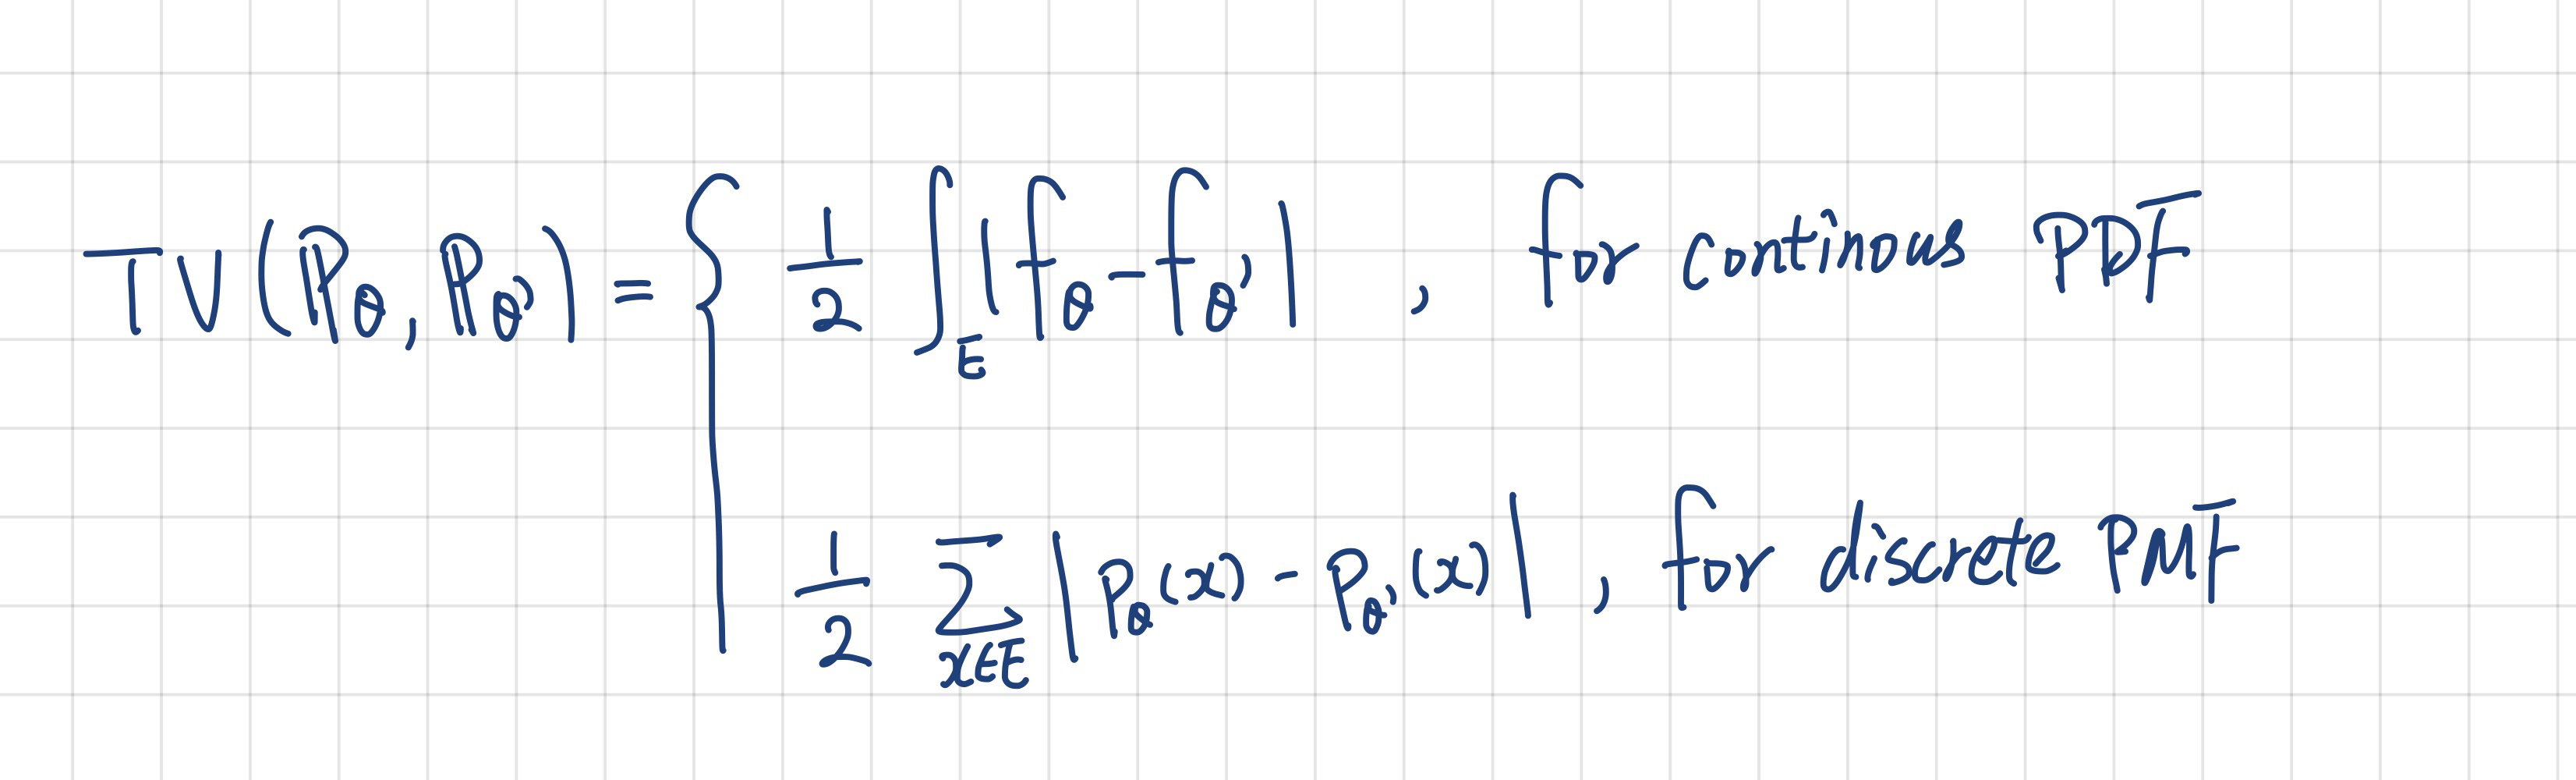 TV(ℙ_θ, ℙ_θ') = { 1/2 ∫_E |f_θ - f_θ'| , for continous PDF
1/2 ∑_{x∈E} |p_θ(x) - p_θ'(x)| , for discrete PMF